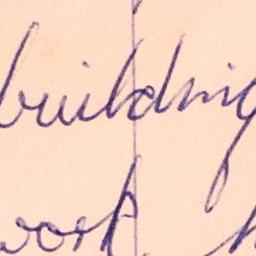 building
work